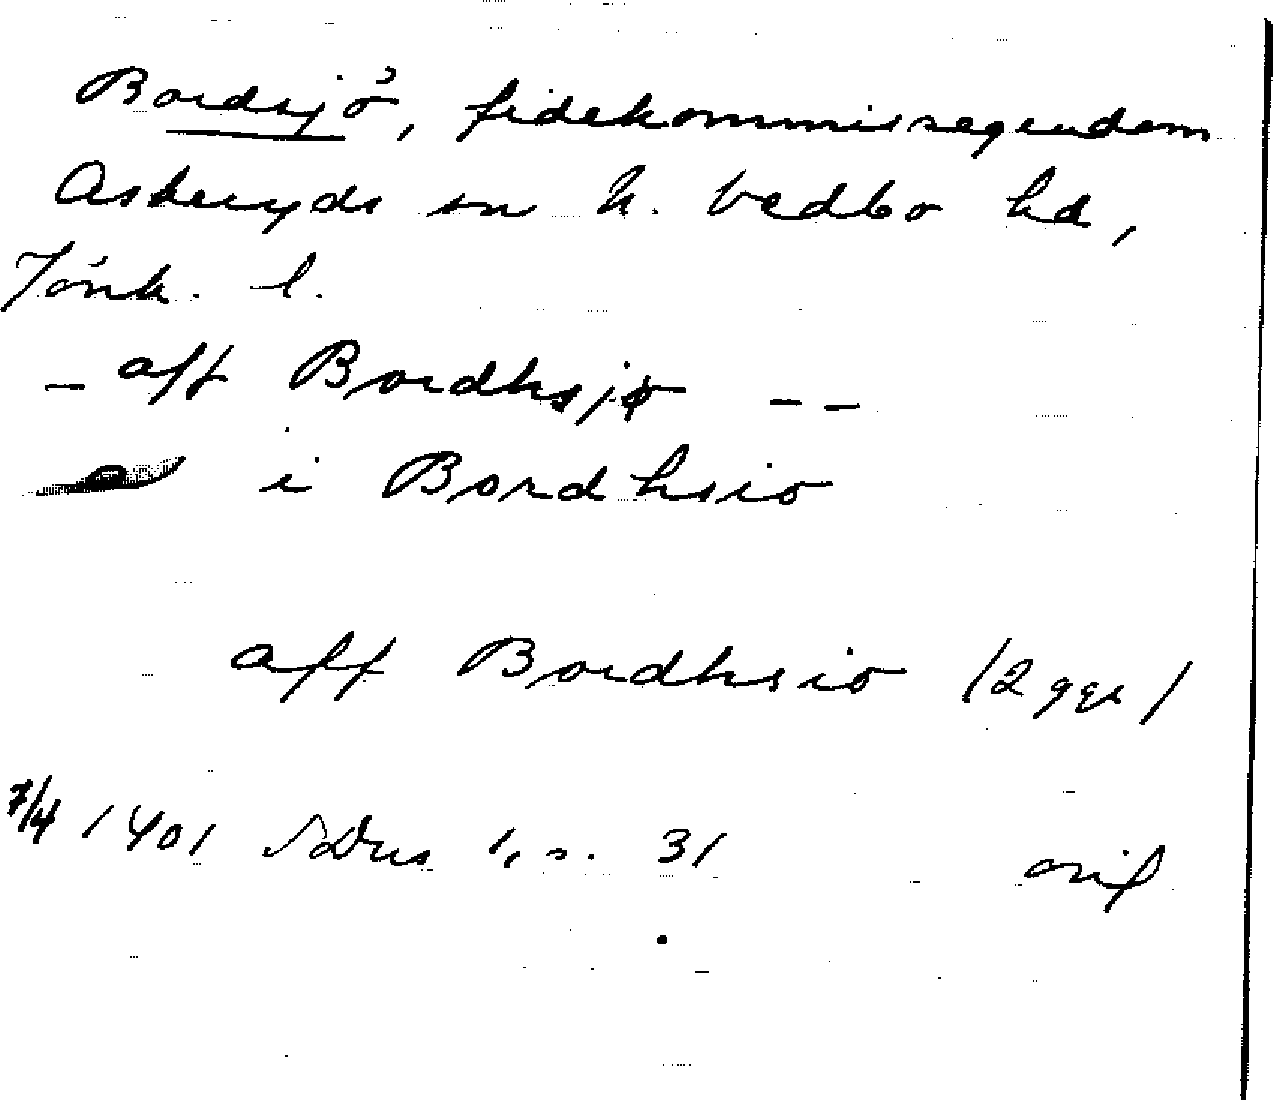 Bordsjö, fideikommissegendom
Askeryds sn N. Vedbo hd,
Jönk. l.
- aff Bordhsjø --
i Bordhsio
aff Bordhsio (2 ggr)
7/4 1401 SDns 1, s. 31 orig